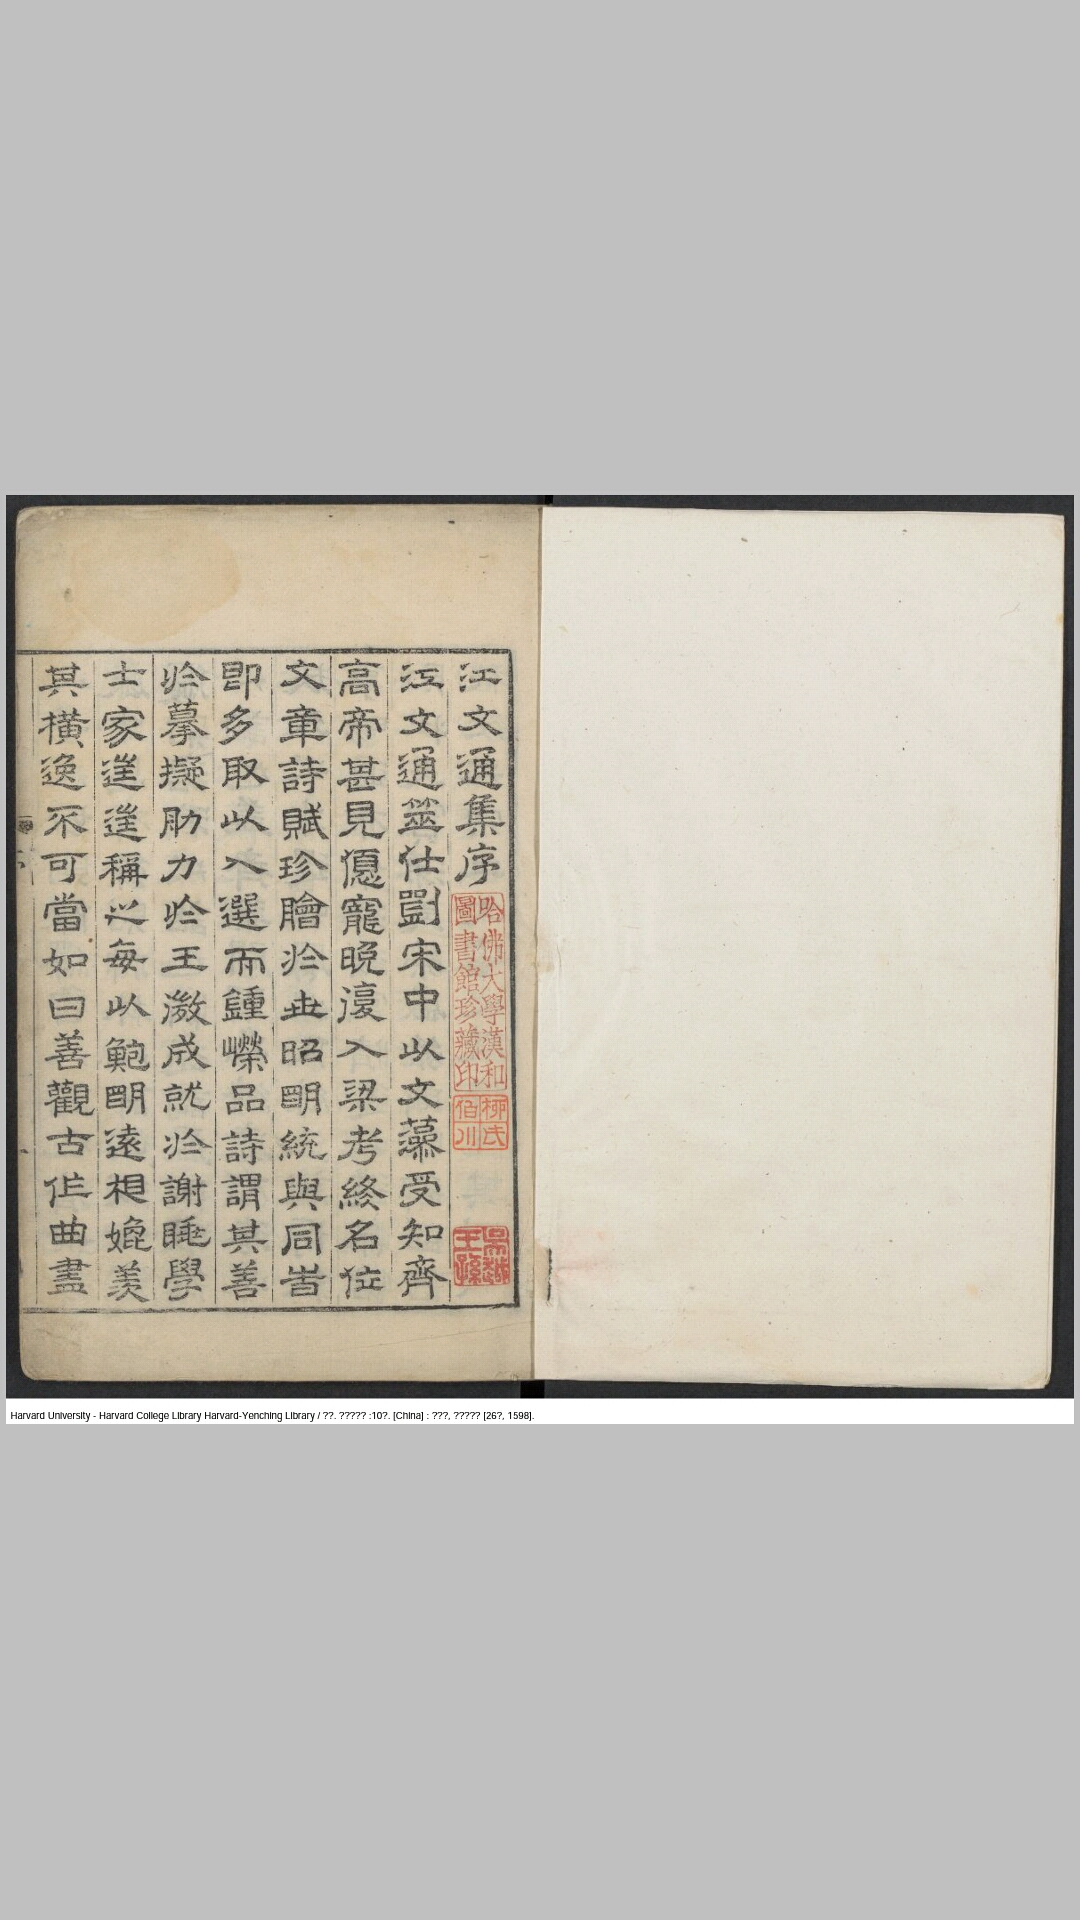 江文通集序
江文通筮仕劉宋中以文藻受知齊
高帝甚見優寵晚復入梁考終名位
文章詩賦珍膾於世昭明統與同時
即多取以入選而鍾嶸品詩謂其善
於摹擬肋力於王微成就於謝朓學
士家往往稱之每以鮑明遠相媲美
其橫逸不可當如曰善觀古作曲盡
哈佛大學漢和
圖書館珍藏印
柳氏
伯川
吳越
王孫
Harvard University - Harvard College Library Harvard-Yenching Library / ??. ????? :10?. [China] : ???, ????? [26?, 1598].